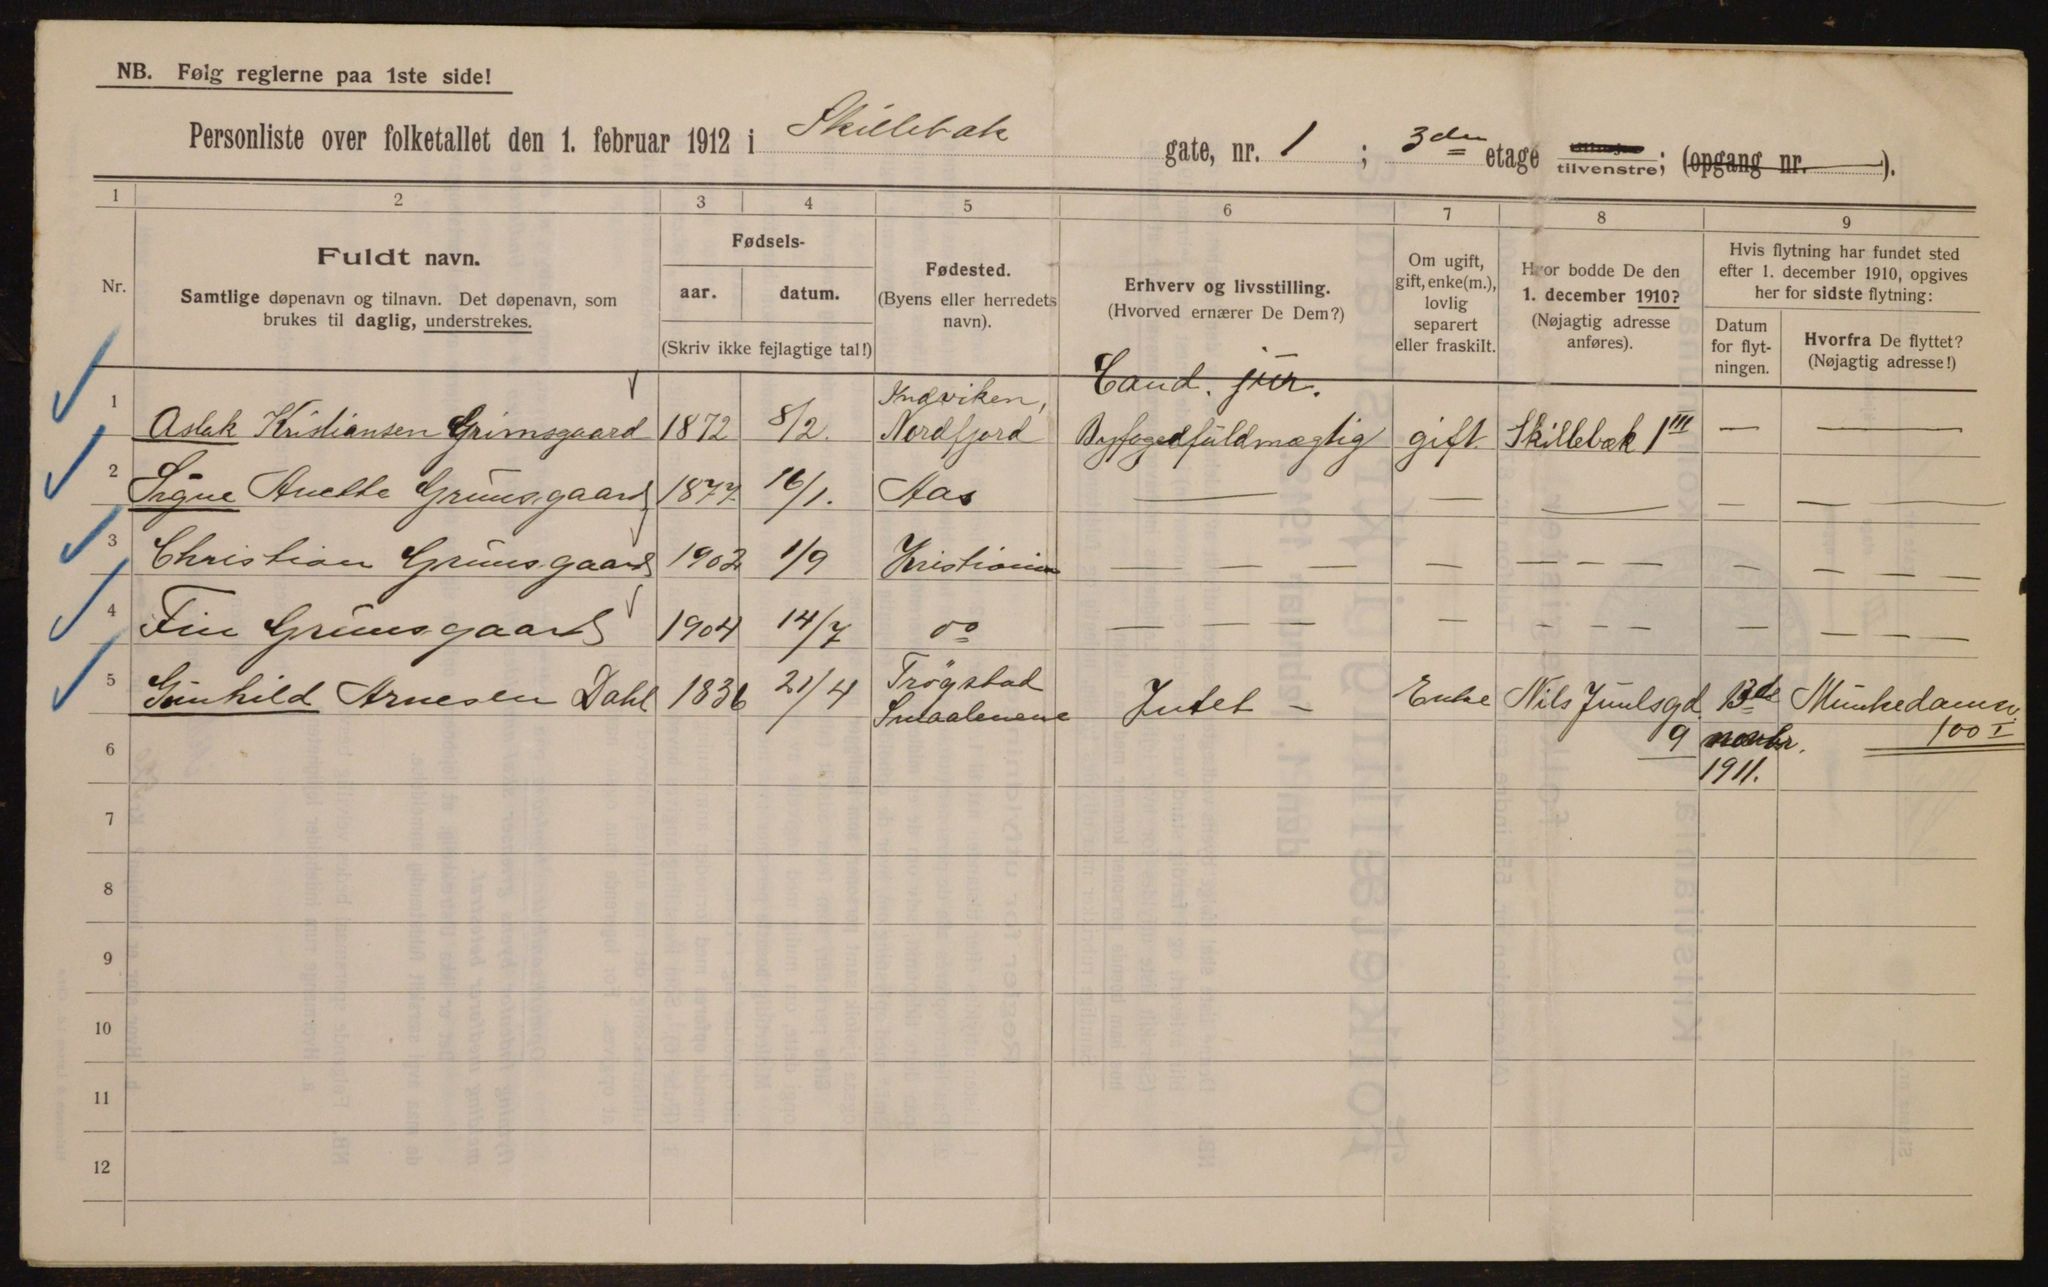 NB. Følg reglerne paa 1ste side!
Personliste over folketallet den 1. februar 1912 i Skillebæk gate, nr. 1 ; 3den etage tilvenstre; (opgang nr. ).
1 2 3 4 5 6 7 8 9
Nr.
Fuldt navn.
Samtlige døpenavn og tilnavn. Det døpenavn, som
brukes til daglig, understrekes.
Fødsels-
aar. datum.
(Skriv ikke fejlagtige tal!)
Fødested.
(Byens eller herredets
navn).
Erhverv og livsstilling.
(Hvorved ernærer De Dem?)
Om ugift,
gift, enke(m.),
lovlig
separert
eller fraskilt.
Hvor bodde De den
1. december 1910?
(Nøjagtig adresse
anføres).
Hvis flytning har fundet sted
efter 1. december 1910, opgives
her for sidste flytning:
Datum
for flyt-
ningen.
Hvorfra De flyttet?
(Nøjagtig adresse!)
Indviken, Cand. jur.
1 Aslak Kristiansen Grimsgaard 1872 8/2. Nordfjord Byfogedfuldmægtig gift Skillebæk 1 III —
2 Signe Anette Grimsgaard 1877 16/1. Aas — — — — — —
3 Christian Grimsgaard 1902 1/9 Kristiania — — — — — — — — — — —
4 Fin Grimsgaard 1904 14/7 do — — — — — — — — — — —
5 Gunhild Arnesen Dahl 1836 21/4 Trøgstad Intet - Enke Nils Juulsgd. 13de Munkedamsv.
Smaalenene 9 novbr. 100 I
6 1911.
7
8
9
10
11
12